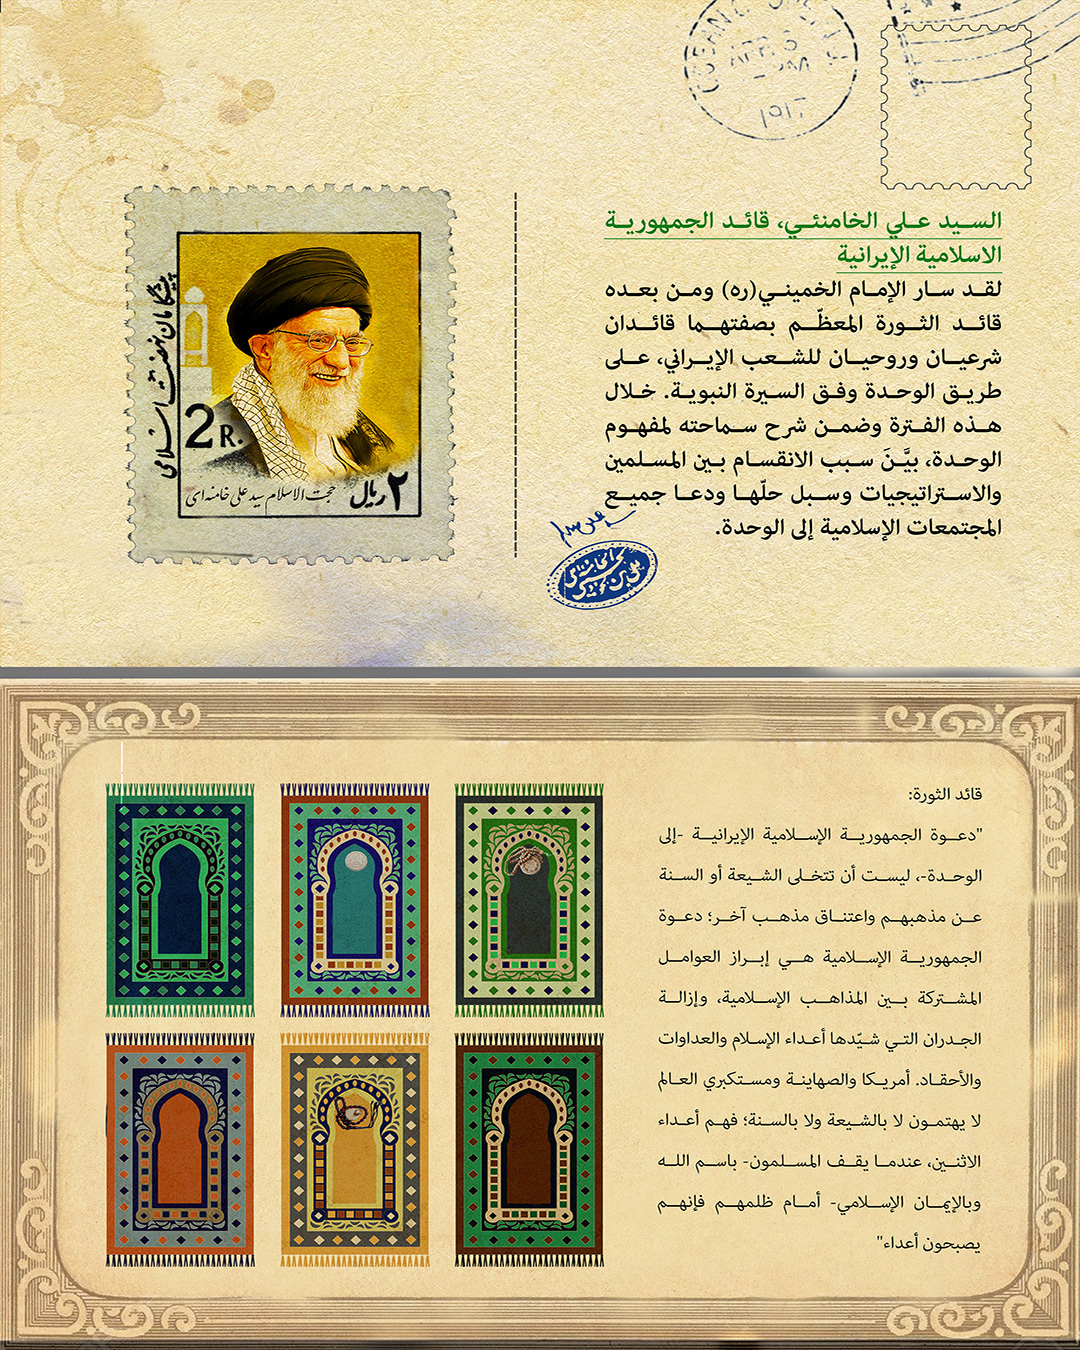 1917
السيد علي الخامنئي، قائد الجمهورية
الاسلامية الإيرانية
لقد سار الإمام الخميني(ره) ومن بعده
قائد الثورة المعظّم بصفتهما قائدان
شرعيان وروحيان للشعب الإيراني، على
طريق الوحدة وفق السيرة النبوية. خلال
هذه الفترة وضمن شرح سماحته لمفهوم
الوحدة، بيَّنَ سبب الانقسام بين المسلمين
والاستراتيجيات وسبل حلّها ودعا جميع
المجتمعات الإسلامية إلى الوحدة.
پیشگامان نهضت اسلامی
2 R.
۲ ریال
حجت الاسلام سید علی خامنه ای
قائد الثورة:
"دعوة الجمهورية الإسلامية الإيرانية -إلى
الوحدة-، ليست أن تتخلى الشيعة أو السنة
عن مذهبهم واعتناق مذهب آخر؛ دعوة
الجمهورية الإسلامية هي إبراز العوامل
المشتركة بين المذاهب الإسلامية، وإزالة
الجدران التي شيّدها أعداء الإسلام والعداوات
والأحقاد. أمريكا والصهاينة ومستكبري العالم
لا يهتمون لا بالشيعة ولا بالسنة؛ فهم أعداء
الاثنين، عندما يقف المسلمون- باسم الله
وبالإيمان الإسلامي- أمام ظلمهم فإنهم
يصبحون أعداء"